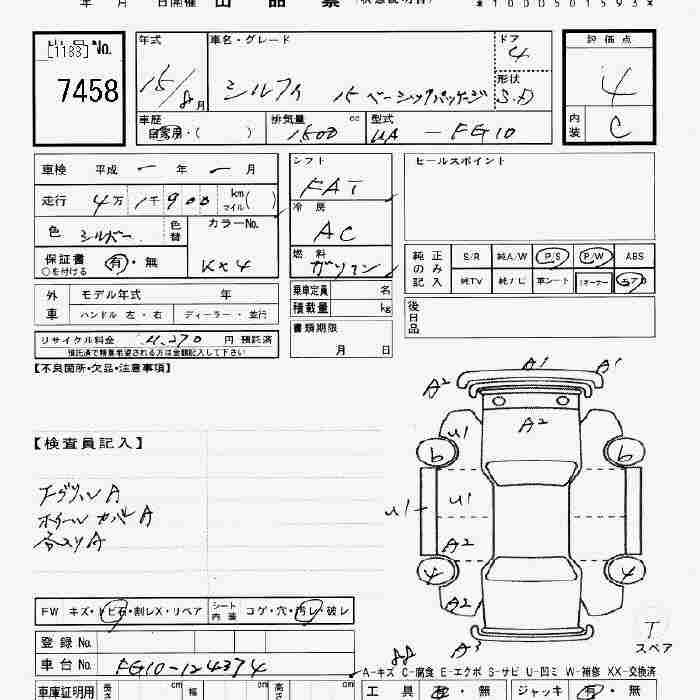 年 月 日開催 出品票
*1000501593*
[1183] No.
7458
年式
15/8月
車名・グレード
シルフィ 15 ベーシックパッケージ
ドア
4
形状
S.D
評価点
4
内装
C
車歴
自家用・( )
排気量 cc
1500
型式
UA - FG10
車検 平成 ー 年 ー 月
走行 4万1千900 km マイル( )
色 シルバー 色替
カラーNo.
KX4
保証書 有・無
○を付ける
シフト
FAT
冷房
AC
燃料
ガソリン
セールスポイント
純正のみ記入
S/R 純A/W P/S P/W ABS
純TV 純ナビ 革シート
外車 モデル年式 年
ハンドル 左・右 ディーラー・並行
乗車定員 名
積載量 kg
後日品
リサイクル料金 11,270 円 預託済
書類期限
月 日
【不良箇所・欠品・注意事項】
A2 A1 A1
A2
U1
6 6
【検査員記入】
U1 U1
ホイールカバーA
A2
4 4
A2
A3
T
スペア
FW キズ・トビ石・割レX・リペア
シート内装 コゲ・穴・汚レ・破レ
登録No.
車台No. FG10-124374
A-キズ C-腐食 E-エクボ S-サビ U-凹ミ W-補修 XX-交換済
車庫証明用 長さ cm 幅 cm 高さ cm
工具 有・無 ジャッキ 有・無